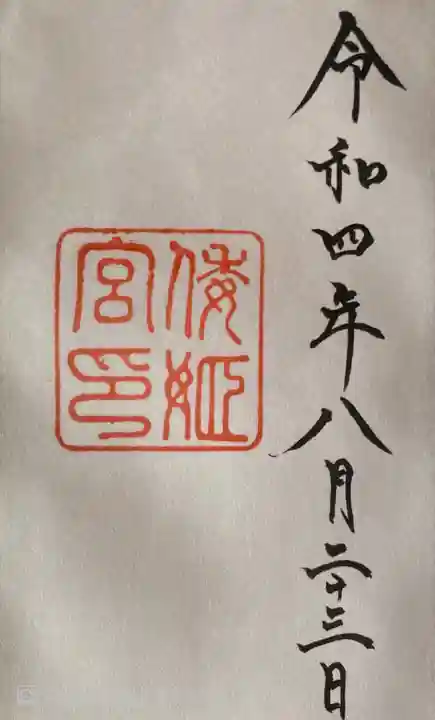 令和四年八月二十三日
倭姫
宮印